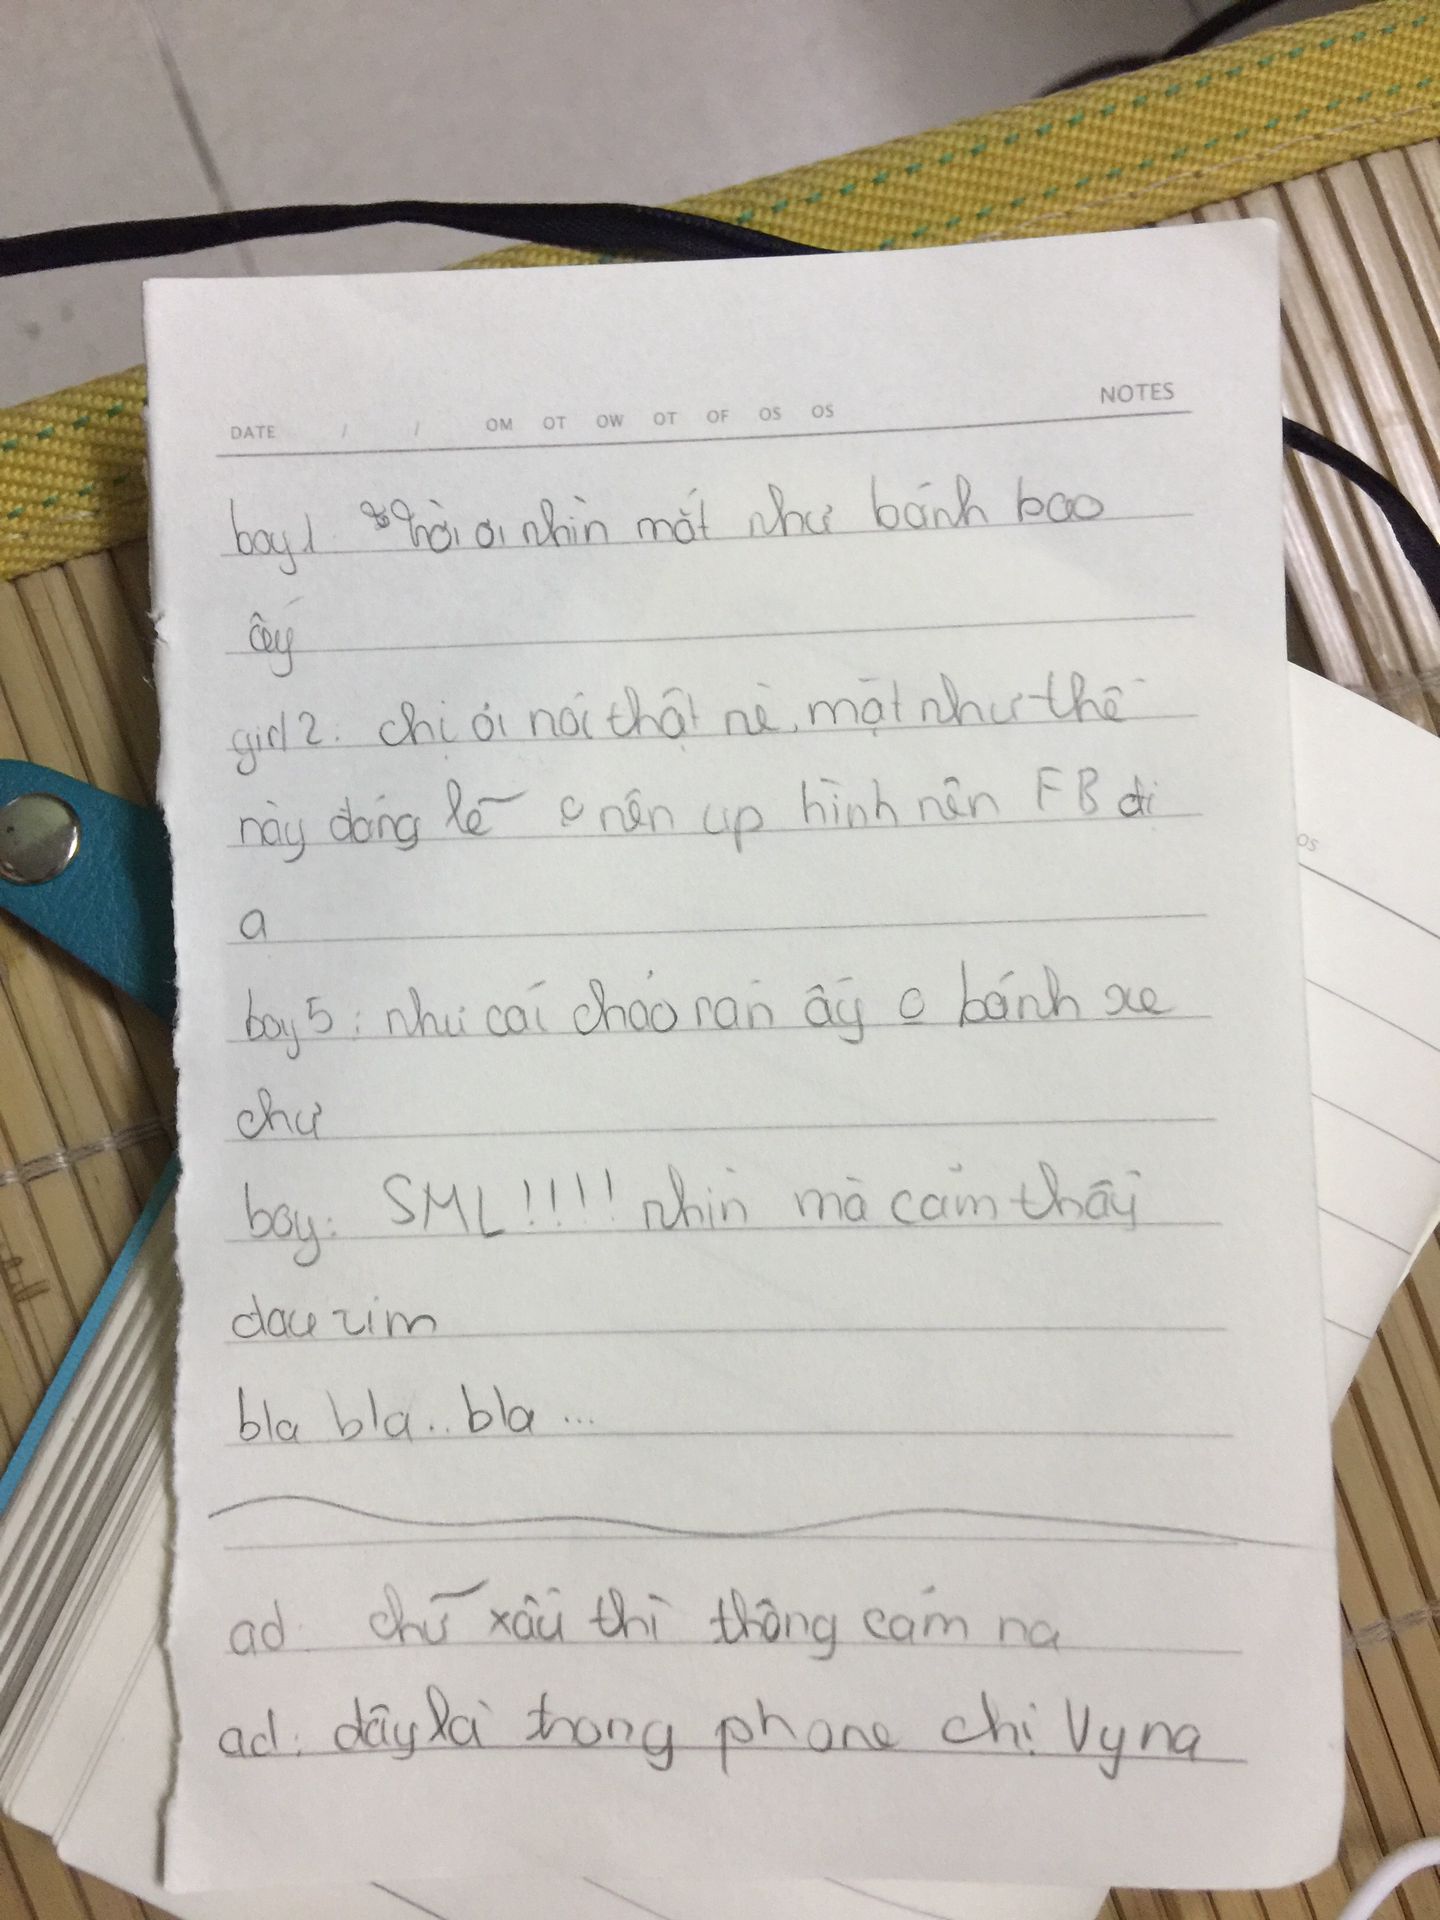 DATE / / OM OT OW OT OF OS OS NOTES
boy1: trời ơi nhìn mặt như bánh bao
ấy
girl2: chị ơi nói thật nè, mặt như thế
này đáng lẽ c nên up hình nên FB đi
a
boy5: như cái chảo rán ấy c bánh xe
chứ
boy: SML!!!! nhìn mà cảm thấy
đau tim
bla bla.. bla ...
ad: chữ xấu thì thông cảm na
ad: đây là trong phone chị Vy na
OS